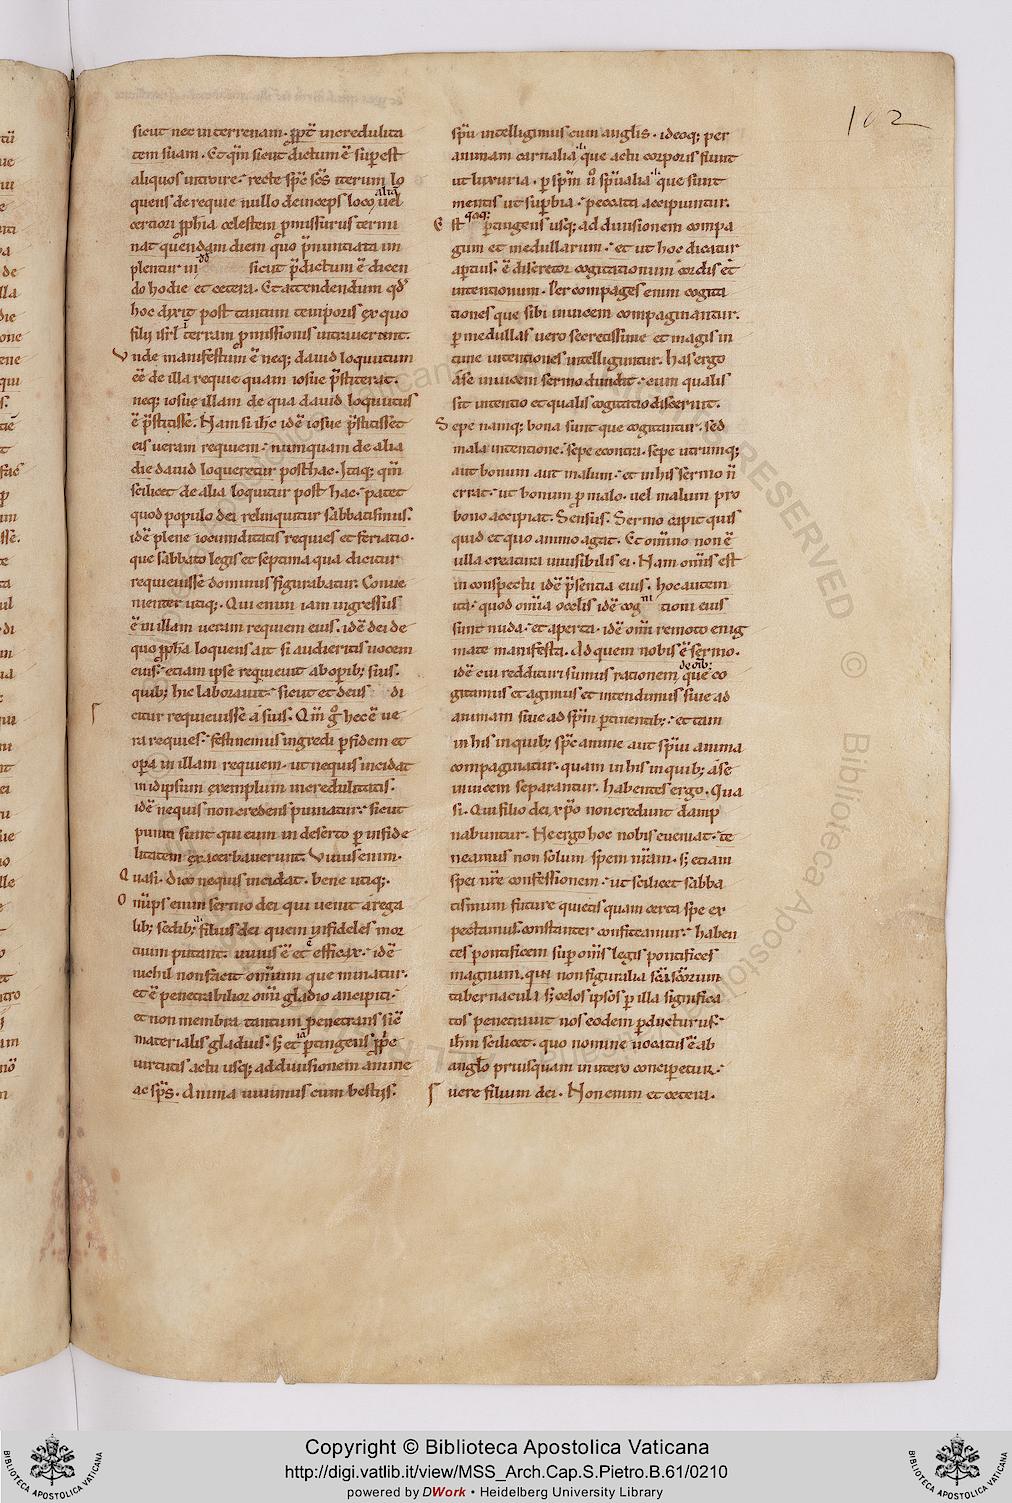 102
sicut nec in terrenam. ꝓpt̄ incredulita
tem suam. Et qm̄ sicut dictum ē sup̄est
aliquos introire. recte spc̄ sc̄s iterum lo
quens de requie nullo deinceps loco uel
certiori ꝓph̄ia celestem ꝓmissurus termi
nat quendam diem quo p̄nuntiata im
plentur in dd sicut p̄dictum ē dicen
do hodie et cetera. Et attendendum qd̄
hoc dixit post tantum temporis ex quo
filii isrl̄ terram ꝓmissionis intrauerunt.
Vnde manifestum ē neq; dauid loquutum
eē de illa requie quam iosue p̄stiterat.
neq; iosue illam de qua dauid loquutus
ē p̄stitisse. Nam si ih̄c idē iosue p̄stitisset
eis ueram requiem. numquam de alia
die dauid loqueretur posthac. Itaq; qm̄
scilicet de alia loquitur post hac. patet
quod populo dei relinquitur sabbatismus.
idē plene iocunditatis requies et feriatio.
que sabbato legis et septima qua dicitur
requieuisse dominus figurabatur. Conue
nienter utiq;. Qui enim iam ingressus
ē in illam ueram requiem eius. idē dei de
quo ꝓph̄a loquens ait si audieritis uocem
eius. etiam ipse requieuit ab operib; suis.
quib; hic laborauit. sicut et deus di
citur requieuisse a suis. Qm̄ g̊ hec ē ue
ra requies. festinemus ingredi ꝑ fidem et
oꝑa in illam requiem. ut ne quis incidat
in idipsum exemplum incredulitatis.
idē ne quis non credens puniatur. sicut
puniti sunt qui eum in deserto ꝑ infide
litatem exacerbauerunt. Viuus enim.
Quasi. dico nequis incidat. bene utiq;.
Om̄ps enim sermo dei qui uenit a rega
lib; sedib; filius dei quem infideles mor
tuum putant. uiuus ē et efficax. idē
nichil non faciet omnium que minatur.
et ē penetrabilior om̄i gladio ancipiti.
et non membra tantum penetrans sic̄
materialis gladius. s; et ꝑtingens ꝓpc̄
uirtutis actu usq; ad diuisionem anime
ac sp̄s. Anima uiuimus cum bestiis.
sp̄u intelligimus cum anglis. ideoq; per
animam carnalia que actu corporis fiunt
ut luxuria. ꝑ sp̄m ů sp̄ualia que sunt
mentis ut suꝑbia. peccata accipiuntur.
Est quoq; ꝑtingens usq; ad diuisionem compa
gum et medullarum. et ut hoc dicatur
aꝑtius. ē discretor cogitationum cordis et
intentionum. Per compages enim cogita
tiones que sibi inuicem compaginantur.
ꝑ medullas uero secretissime et magis in
time intentiones intelliguntur. has ergo
a se inuicem sermo diuidit. cum qualis
sit intentio et qualis cogitatio discernit.
Sepe namq; bona sunt que cogitantur. sed
mala intentione. sepe econtra. sepe utrumq;
aut bonum aut malum. et in his sermo n̄
errat. ut bonum ꝑ malo. uel malum pro
bono accipiat. Sensus. Sermo capit quis
quid et quo animo agat. Et om̄ino non ē
ulla creatura inuisibilis ei. Nam om̄is est
in conspectu idē p̄sentia eius. hoc autem
ita. quod om̄ia oculis idē cogni tioni eius
sunt nuda. et aperta. idē om̄i remoto enig
mate manifesta. Ad quem nobis ē sermo.
idē cui reddituri sumus rationem de om̄ib; que co
gitamus et agimus et intendimus siue ad
animam siue ad sp̄m ꝑtinentib;. et tam
in his in quib; spc̄ anime aut sp̄ui anima
compaginatur. quam in his in quib; a se
inuicem separantur. habentes ergo. Qua
si. Qui filio dei xp̄o non credunt damp
nabuntur. Ne ergo hoc nobis eueniat. te
neamus non solum spem nr̄am. s; etiam
spei nr̄e confessionem. ut scilicet sabba
tismum future quietis quam certa spe ex
pectamus. constanter confiteamur. haben
tes pontificem suꝑ om̄is legis pontifices
magnum. qui non figuralia sc̄a sc̄orum
tabernacula s; celos ipsos ꝑ illa significa
tos penetrauit nos eodem ꝑducturus.
ih̄m scilicet. quo nomine uocatus ē ab
anglo priusquam in utero conciperetur.
uere filium dei. Non enim et cetera.
Copyright © Biblioteca Apostolica Vaticana
http://digi.vatlib.it/view/MSS_Arch.Cap.S.Pietro.B.61/0210
powered by DWork • Heidelberg University Library
BIBLIOTECA APOSTOLICA VATICANA
BIBLIOTECA APOSTOLICA VATICANA